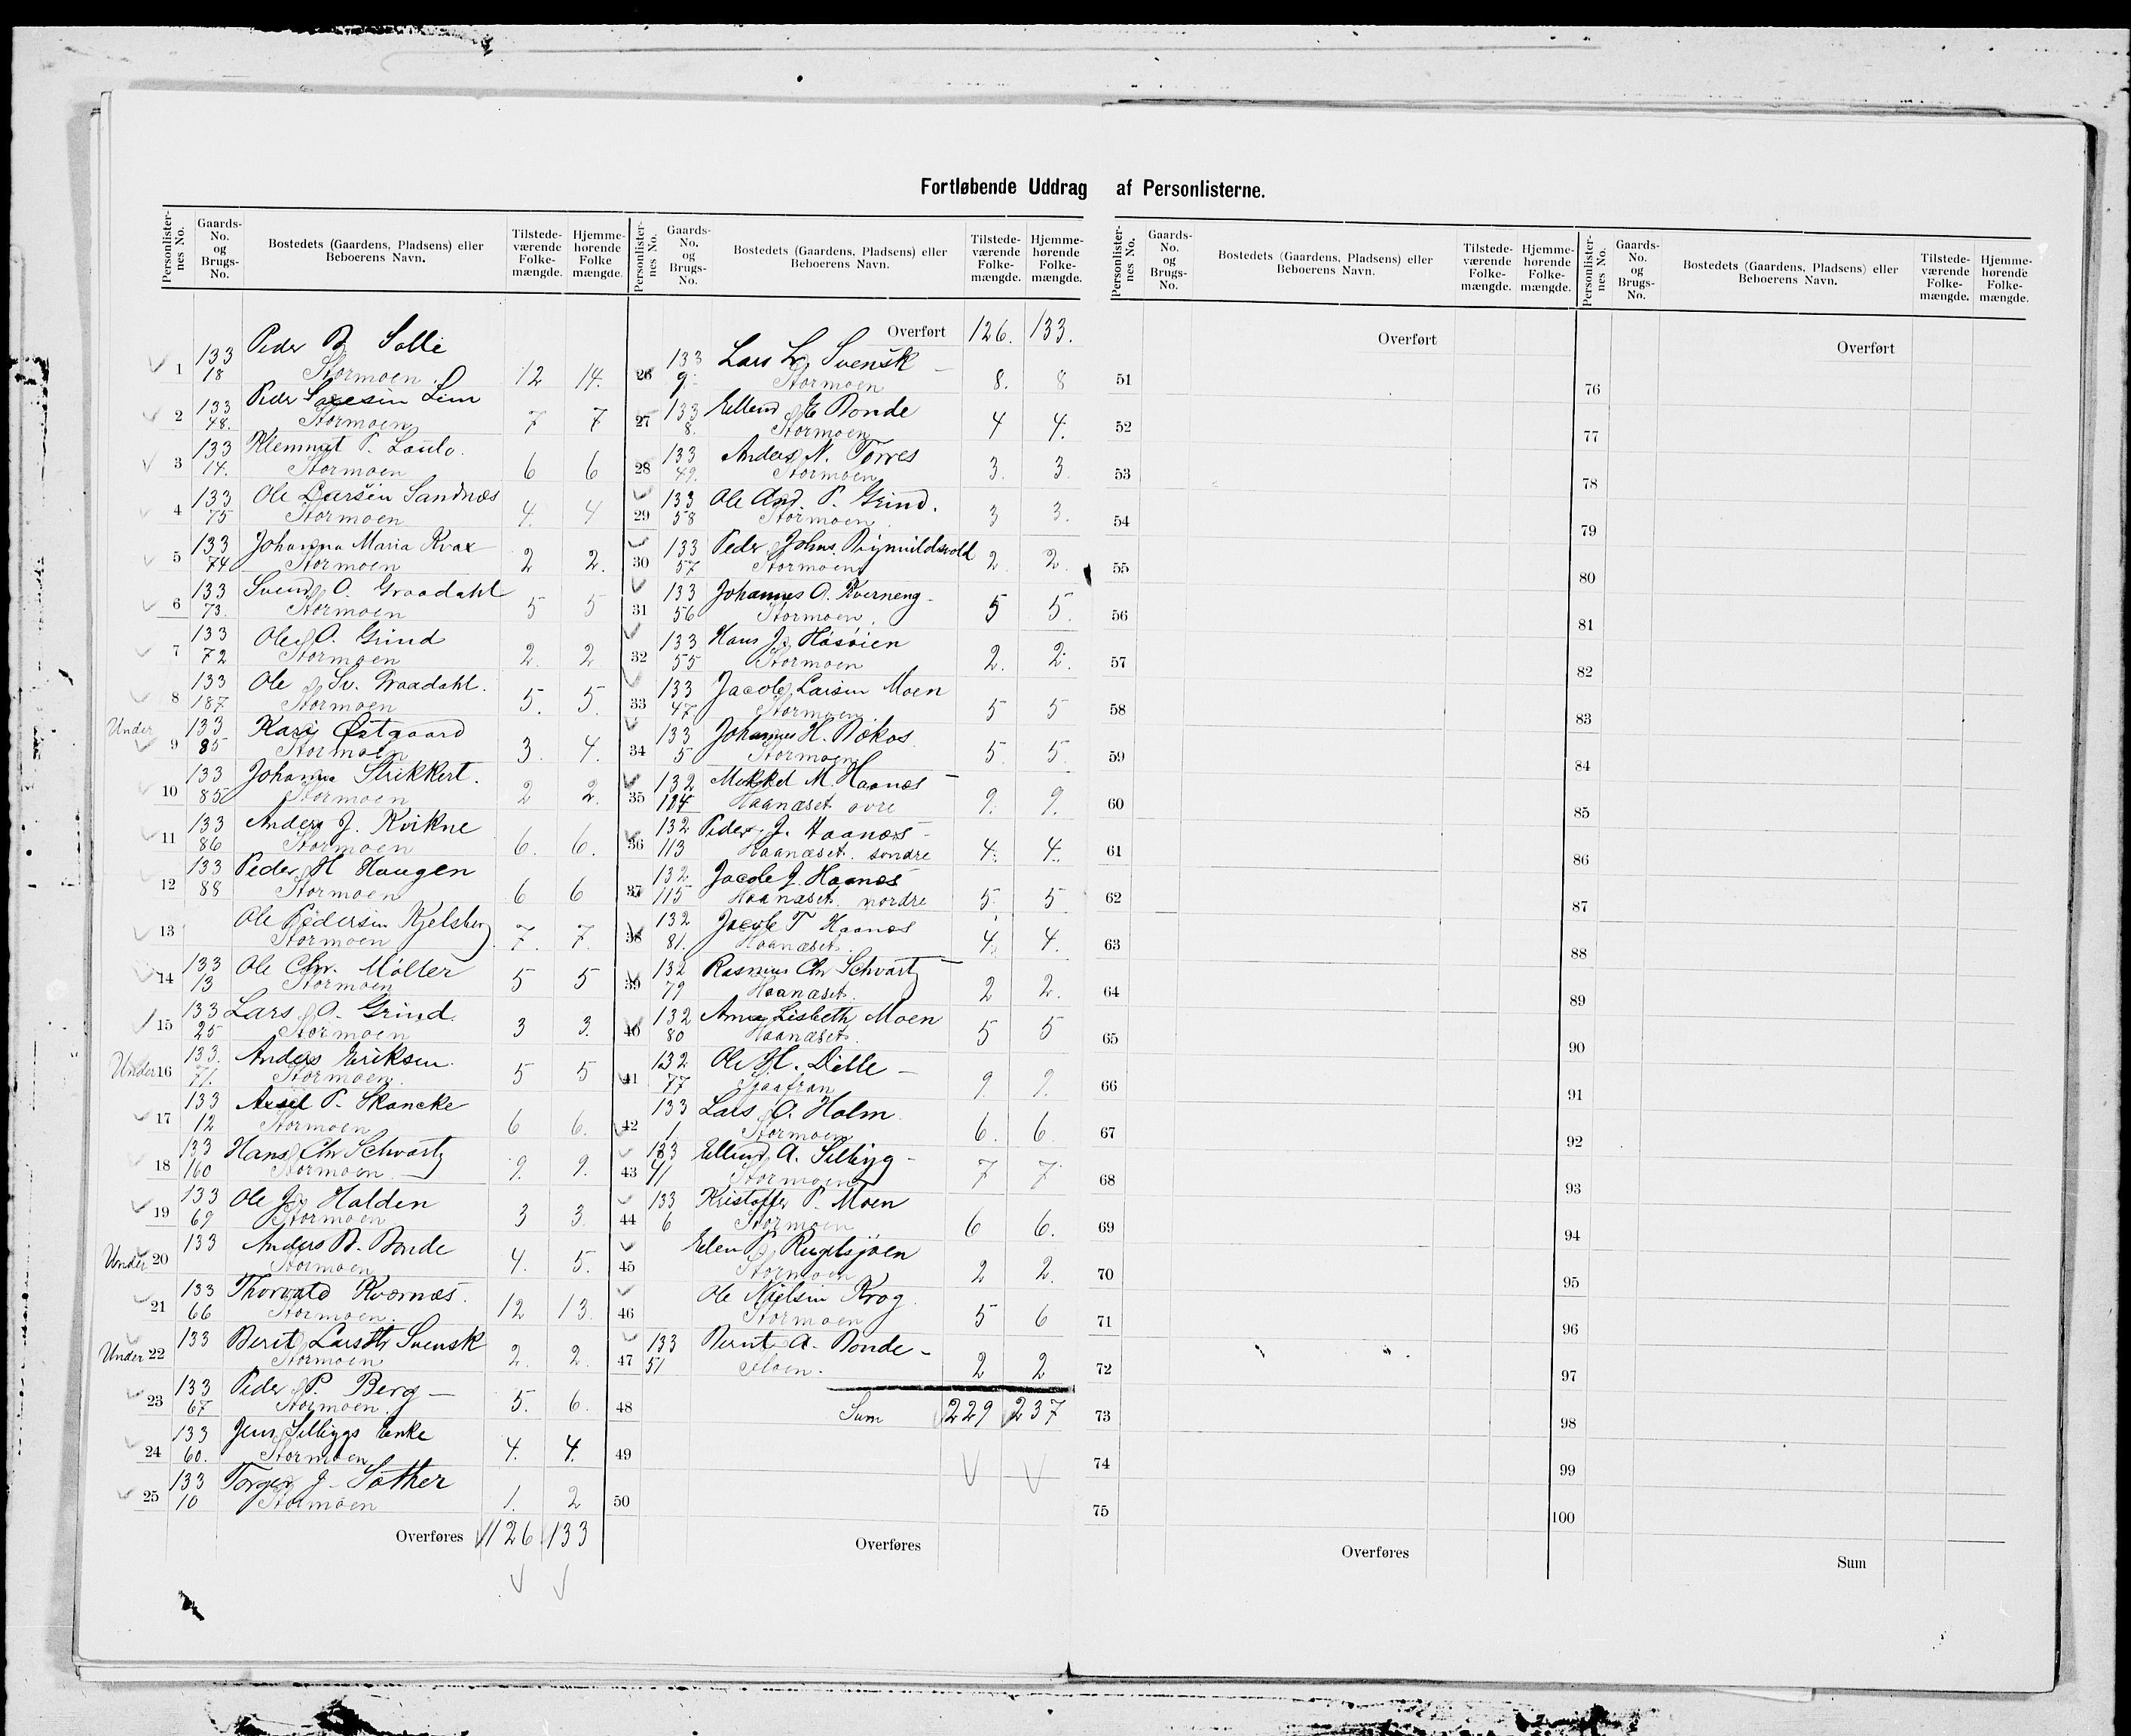 Fortløbende Uddrag af Personlisterne.
Personlister-nes No. Gaards-No. og Brugs-No. Bostedets (Gaardens, Pladsens) eller Beboerens Navn. Tilstede-værende Folke-mængde. Hjemme-hørende Folke mængde.
133 Peder B Solli
1 18 Stormoen 12 14.
133 Peder Lem
2 48. Stormoen 7 7
133 Klemmet P.
3 14. Stormoen 6 6
133 Ole Larsen Sandnæs
4 75 Stormoen 4. 4
133 Johanna Maria Kvar
5 74 Stormoen 2 2.
133 Svend O. Graadahl
6 73. Stormoen 5 5
133 Ole O. Grind
7 72 Stormoen 2. 2
133 Ole Sv. Graadahl.
8 187 Stormoen 5. 5.
Under 133 Kari Østgaard
9 85 Stormoen 3. 4.
133 Johanna Strikkert.
10 85 Stormoen 2 2.
133 Anders J. Kvikne
11 86 Stormoen 6. 6.
133 Peder H Haugen
12 88 Stormoen 6 6
Ole Pedersen Kjelsberg
13 Stormoen 7. 7.
133 Ole Chr. Möller
14 13 Stormoen 5 5
133 Lars O. Grind.
15 25 Stormoen 3 3.
133. Anders Eriksen.
Under 16 71. Stormoen. 5 5
133 Axsel P. Skancke
17 12 Stormoen 6 6.
133 Hans Chr Schvartz
18 160 Stormoen 9. 9.
133 Ole J. Holden
19 69 Stormoen 3 3.
133 Anders B. Bonde
Under 20 Stormoen 4. 5.
133 Thorvald Kvernæs.
21 66 Stormoen. 12 13.
133 Berit Larsdtr Svensk
Under 22 Stormoen 2. 2.
133 Peder P. Berg
23 67 Stormoen. 5. 6.
133 Jens Silliggs Enke
24 60. Stormoen 4. 4.
133 Torger J. Säther
25 10 Stormoen 1. 2
Overføres 126 133
Personlister-nes No. Gaards-No. og Brugs-No. Bostedets (Gaardens, Pladsens) eller Beboerens Navn. Tilstede-værende Folke-mængde. Hjemme-hørende Folke-mængde.
Overført 126. 133.
133 Lars L. Svensk
26 9. Stormoen 8. 8
133 Ellend E Bonde
27 8. Stormoen 4 4.
133 Anders N. Torres
28 49. Stormoen 3. 3.
133 Ole And. P. Grind.
29 58 Stormoen. 3 3.
133 Peder Johns.
30 57 Stormoen 2. 2.
133 Johannes O. Kverneng
31 56 Stormoen. 5 5.
133 Hans J. Håsøien
32 55 Stormoen 2. 2.
133 Jacob Larsen Moen
33 47 Stormoen 5 5
133 Johannes H. Bokos
34 5 Stormoen 5. 5.
132 Mikkel M. Haanæs
35 114 Haanæset øvre 9. 9.
132 Peder J. Haanæs
36 113 Haanæset søndre 4. 4.
132 Jacob J. Haanæs
37 115 Haanæset nordre 5. 5
132 Jacob T Haanæs
38 81. Haanæset. 4. 4.
132 Rasmus Chr Schvartz
39 79 Haanæset. 2 2.
132 Anna Lisbeth Moen
40 80 Haanæset. 5 5
132 Ole H. Dille
41 77 9. 9.
133 Lars O. Holm
42 1 Stormoen 6. 6
133 Ellend A. Silligg
43 41 Stormoen 7 7
133 Kristoffer P. Moen
44 6 Stormoen 6 6.
Elen P. Rugelsjøen
45 Stormoen 2 2.
Ole Nielsen Krog
46 Stormoen 5 6
133 Bernt A. Bonde
47 51 Moen. 2 2
48 Sum 229 237
49
50
Overføres
Personlister-nes No. Gaards-No. og Brugs-No. Bostedets (Gaardens, Pladsens) eller Beboerens Navn. Tilstede-værende Folke-mængde. Hjemme-hørende Folke-mængde.
Overført
51
52
53
54
55
56
57
58
59
60
61
62
63
64
65
66
67
68
69
70
71
72
73
74
75
Overføres
Personlister-nes No. Gaards-No. og Brugs-No. Bostedets (Gaardens, Pladsens) eller Beboerens Navn. Tilstede-værende Folke-mængde. Hjemme-hørende Folke-mængde.
Overført
76
77
78
79
80
81
82
83
84
85
86
87
88
89
90
91
92
93
94
95
96
97
98
99
100
Sum